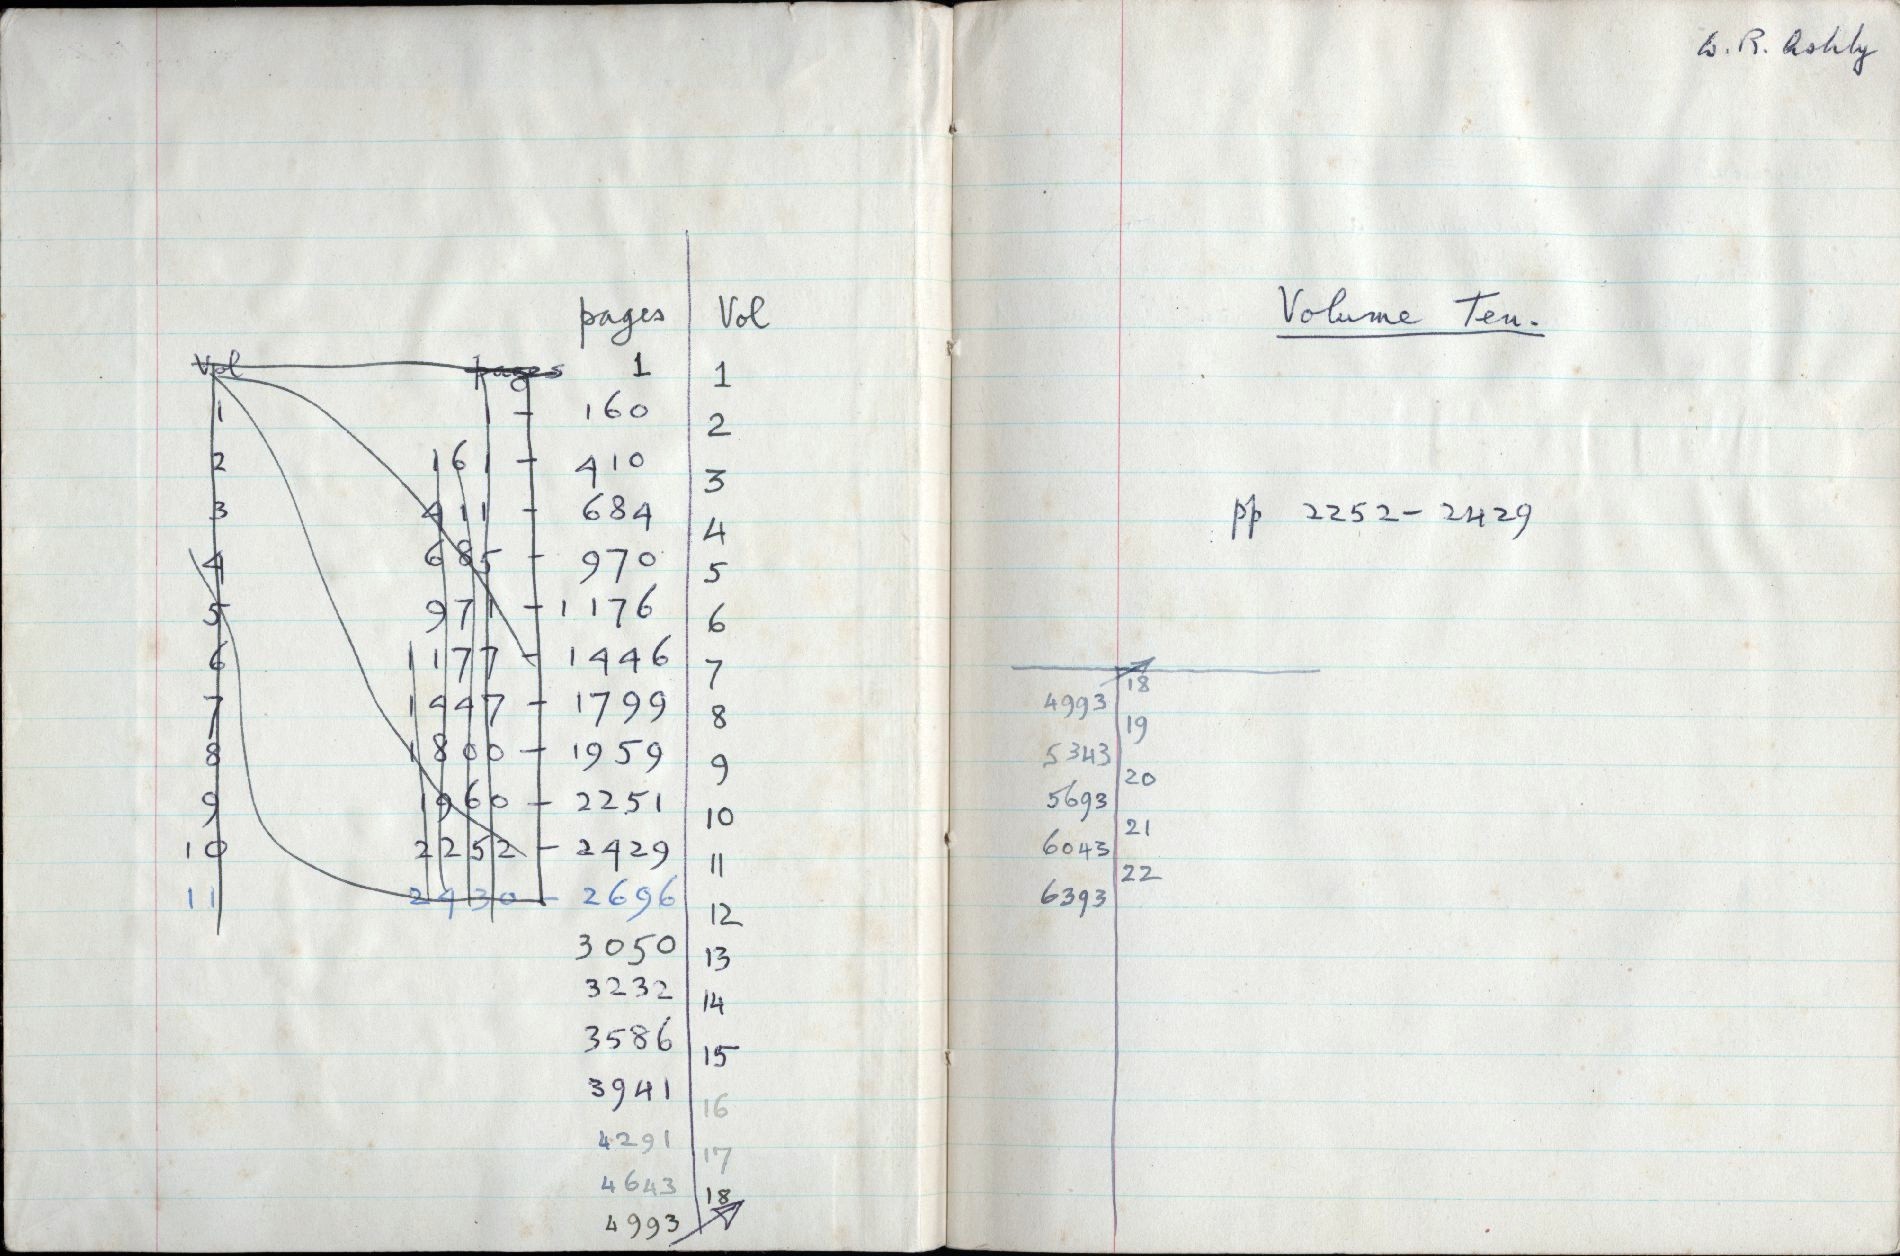 pages Vol
Vol pages 1 1
1 1 - 160 2
2 161 - 410 3
3 411 - 684 4
4 685 - 970 5
5 971 - 1176 6
6 1177 - 1446 7
7 1447 - 1799 8
8 1800 - 1959 9
9 1960 - 2251 10
10 2252 - 2429 11
11 2430 - 2696 12
3050 13
3232 14
3586 15
3941 16
4291 17
4643 18
4993
W. R. Ashby
Volume Ten.
pp 2252 - 2429
18
4993
19
5343
20
5693
21
6043
22
6393